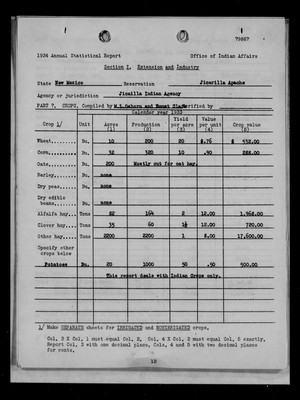 79867
1934 Annual Statistical Report Office of Indian Affairs
Section I. Extension and Industry
State New Mexico Reservation Jicarilla Apache
Agency or jurisdiction Jicarilla Indian Agency
PART 7. CROPS. Compiled by verified by
Calendar year 1933
Crop 1/ Unit Acres (1) Production (2) Yield per acre (3) Value per unit (4) Crop value (5)
Wheat..... Bu. 10 200 20 $.76 $ 152.00
Corn..... Bu. 32 320 10 .90 288.00
Oats..... Bu. 200 Mostly cut for oat hay.
Barley..... Bu. none
Dry peas.. Bu. none
Dry edible
beans..... Bu. none
Alfalfa hay.. Tons 82 164 2 12.00 1,968.00
Clover hay... Tons 35 60 1½ 12.00 720.00
Other hay.... Tons 2200 2200 1 8.00 17,600.00
Specify other
crops below
Potatoes Bu. 20 1000 50 .50 500.00
This report deals with Indian Crops only.
1/ Make SEPARATE sheets for IRRIGATED and NONIRRIGATED crops.
Col. 3 X Col. 1 must equal Col. 2, Col. 4 X Col. 2 must equal Col. 5 exactly.
Report Col. 3 with one decimal place, Cols. 4 and 5 with two decimal places
for cents.
12